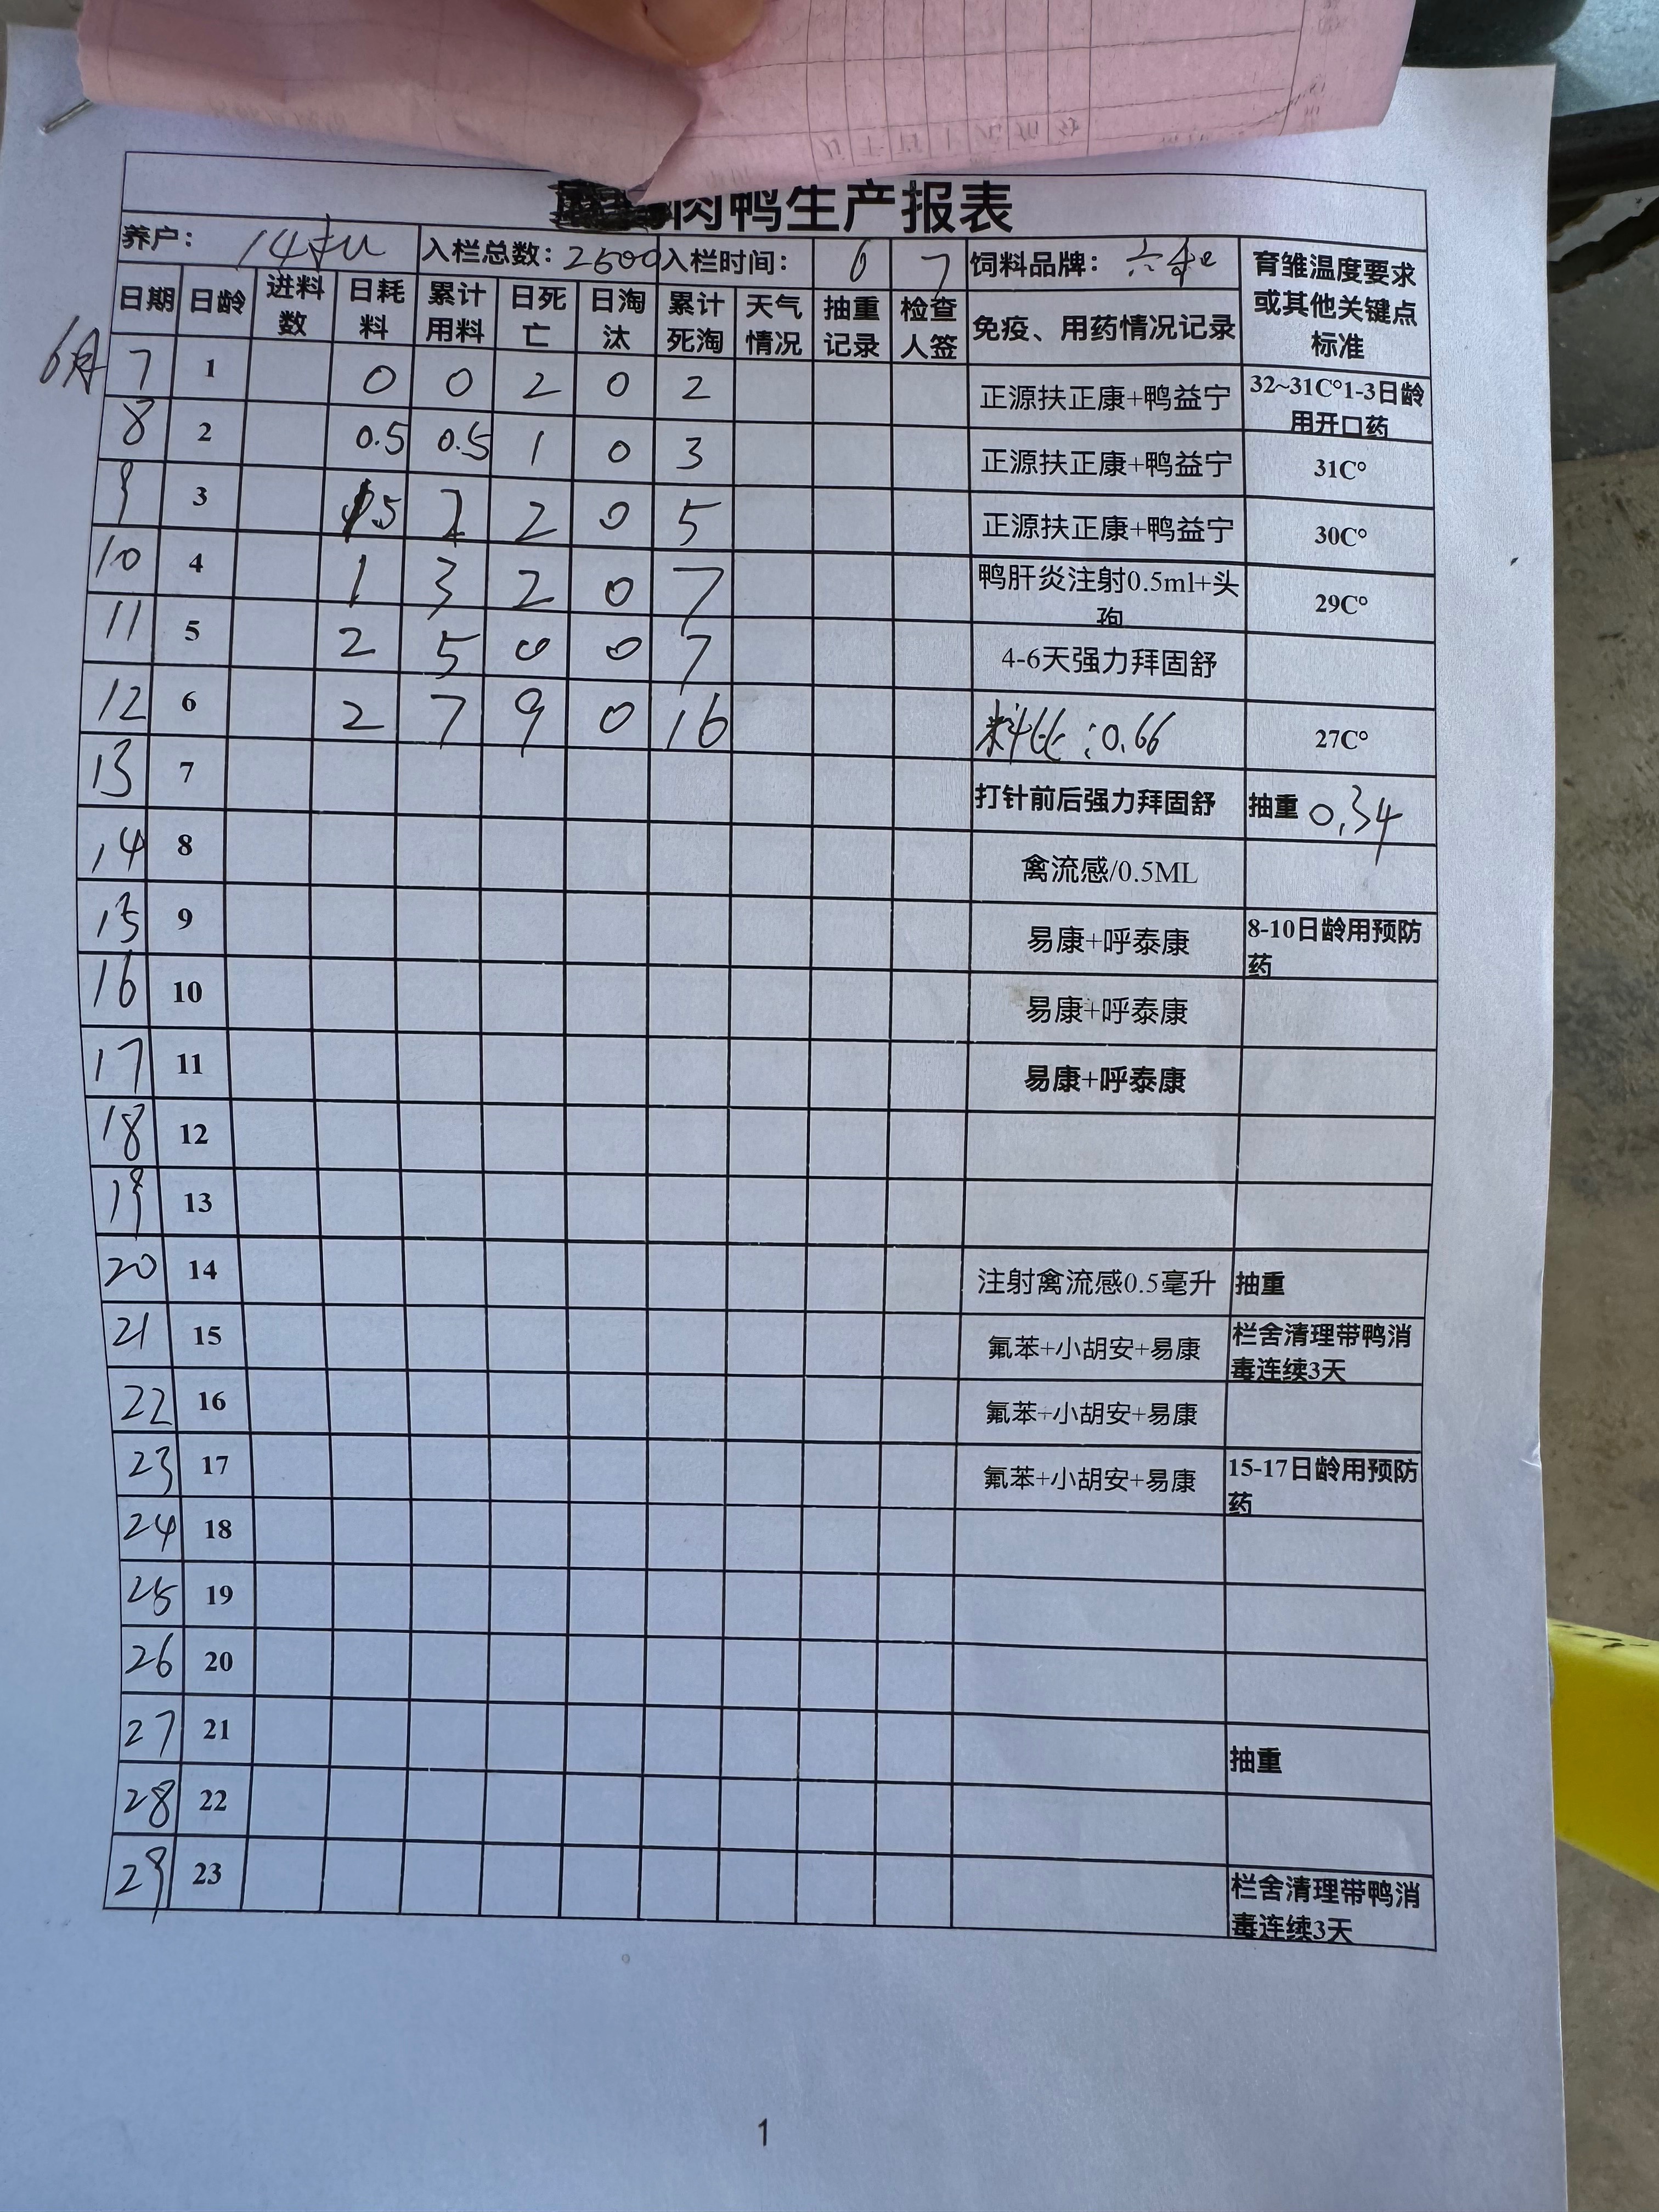 肉鸭生产报表
养户： 14 入栏总数：2500 入栏时间： 6 7 饲料品牌：六和 育雏温度要求或其他关键点标准
日期 日龄 进料数 日耗料 累计用料 日死亡 日淘汰 累计死淘 天气情况 抽重记录 检查人签 免疫、用药情况记录
6月 7 1 0 0 2 0 2 正源扶正康+鸭益宁 32~31C°1-3日龄用开口药
8 2 0.5 0.5 1 0 3 正源扶正康+鸭益宁 31C°
9 3 1.5 2 2 0 5 正源扶正康+鸭益宁 30C°
10 4 1 3 2 0 7 鸭肝炎注射0.5ml+头孢 29C°
11 5 2 5 0 0 7 4-6天强力拜固舒
12 6 2 7 9 0 16 料比：0.66 27C°
13 7 打针前后强力拜固舒 抽重 0.34
14 8 禽流感/0.5ML
15 9 易康+呼泰康 8-10日龄用预防药
16 10 易康+呼泰康
17 11 易康+呼泰康
18 12
19 13
20 14 注射禽流感0.5毫升 抽重
21 15 氟苯+小胡安+易康 栏舍清理带鸭消毒连续3天
22 16 氟苯+小胡安+易康
23 17 氟苯+小胡安+易康 15-17日龄用预防药
24 18
25 19
26 20
27 21 抽重
28 22
29 23 栏舍清理带鸭消毒连续3天
1